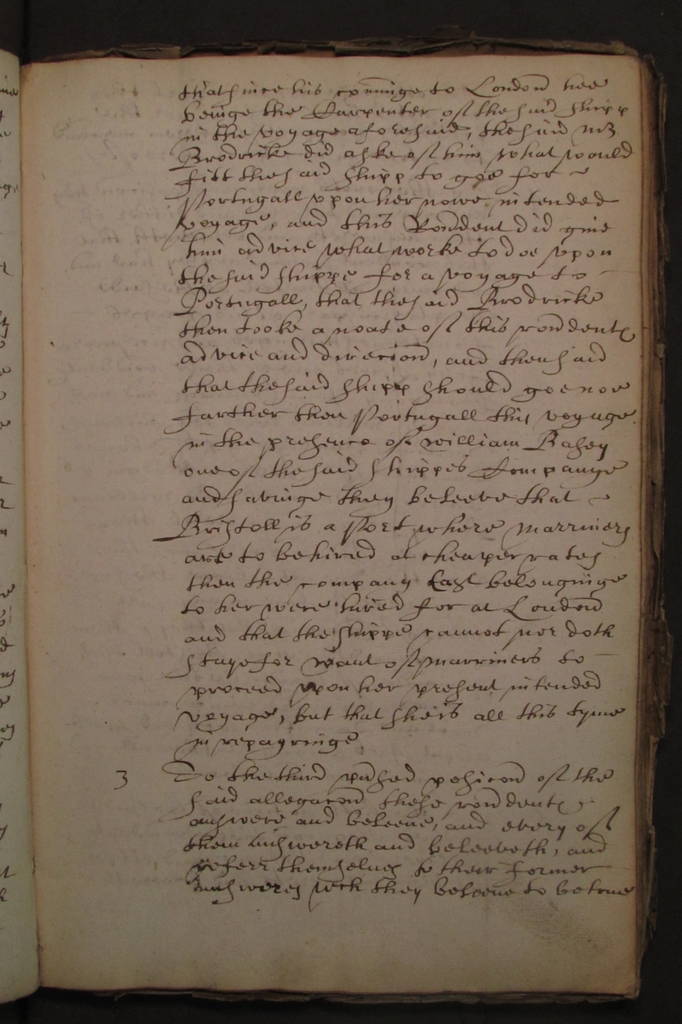 that since his cominge to London hee
beinge the Carpenter of the said shipp
in the voyage aforesaid, the said mr
Brodricke did aske of him what would
fitt the said shipp to goe for
Portugall upon her nowe intended
voyage, and this Rondent did give
him advice what worke to doe upon
the said shippe for a voyage to
Portugall, that the said Brodricke
then tooke a noate of this rondents
advice and direccion, and then said
that the said shipp should goe noe
farther then Portugall this voyage
in the presence of william
one of the said shippes Company
and savinge they beleeve that
Bristoll is a Port where marriners
are to be hired at cheaper rates
then the company last belonginge
to her were hired for at London
and that the shippe cannot nor doth
staye for want of marriners to
proceed upon her present intended
voyage, but that she is all this tyme
in repayringe.
3 To the third posicon of the
said allegacon these rondents
answere and beleeve, and every of
them answereth and beleeveth, and
referr themselves to their former
answeres wch they beleeve to be true